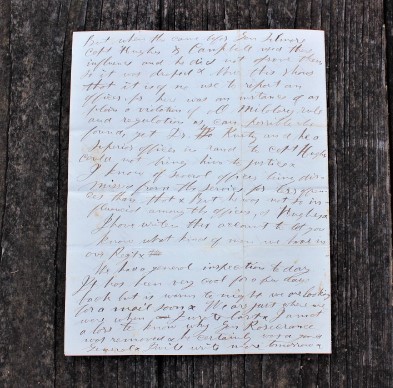 But when the came before Gen Gilmore
Capt Hughes & Campbell used their
influence and he did not approve them
So it was dropt x Now this shows
that it is of no use to report an
officer, for here was an instance of as
violation of all Military rules
and regulation as can possible be
found, yet Dr Kurtz and he a
Superior officer in rank to Capt Hughes
could not bring him to justice x
I know of several officers being dis-
missed from the service for less offen-
ces than that x But he was not so in-
among the officers, as Hughes x
I have written this account to let you
know what kind of men we have in
our Regt x
We had a general inspection to day
It has been very cool for a few days
back but is warm to night we are looking
for a mail soon x We are just where we
were when I wrote last x I am at
a lost to know why Gen Rosecrance
was removed x He certainly was a good
General write more tomorrow x